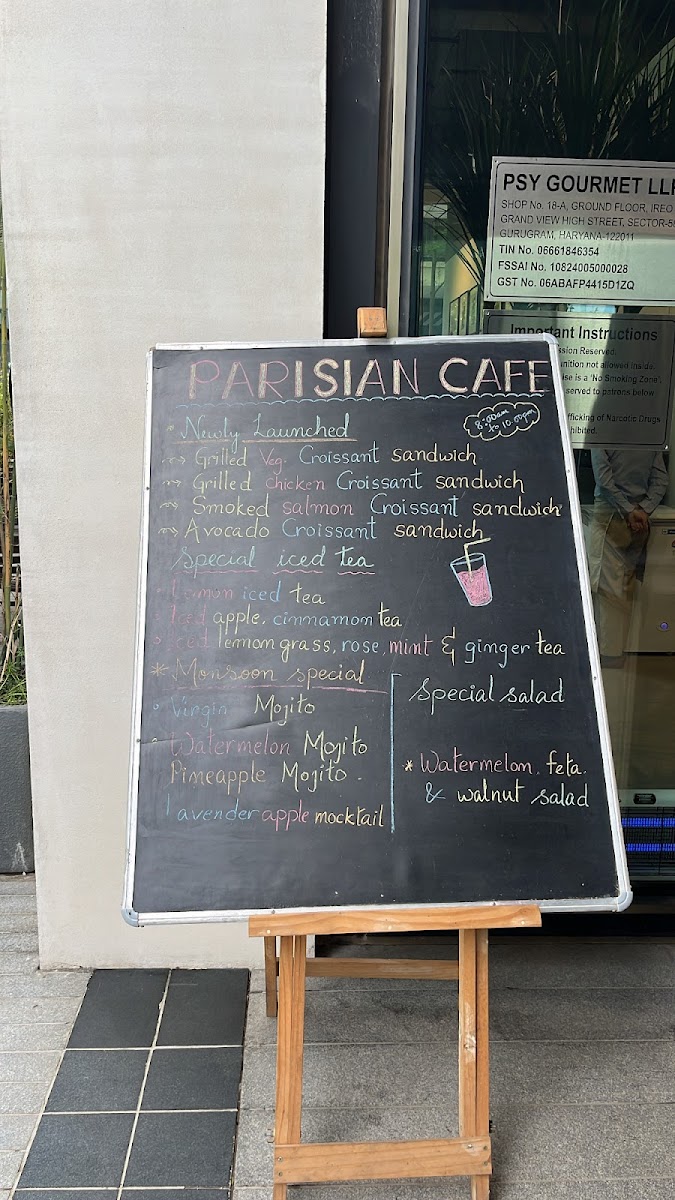 PARISIAN CAFE
8.00am
to 10.00pm
Newly Launched
Grilled Veg. Croissant sandwich
Grilled chicken Croissant sandwich
Smoked salmon Croissant sandwich
Avocado Croissant sandwich
Special iced tea
Lemon iced tea
Iced apple, cinnamon tea
Iced lemon grass, rose, mint & ginger tea
* Monsoon special
Virgin Mojito
Watermelon Mojito
Pineapple Mojito.
Lavender apple mocktail
Special salad
* Watermelon, feta,
& walnut salad
PSY GOURMET LLP
SHOP No. 18-A, GROUND FLOOR, IREO
GRAND VIEW HIGH STREET, SECTOR-58
GURUGRAM, HARYANA-122011
TIN No. 06661846354
FSSAI No. 10824005000028
GST No. 06ABAFP4415D1ZQ
Important Instructions
Reserved.
not allowed inside.
is a 'No Smoking Zone',
served to patrons below
of Narcotic Drugs